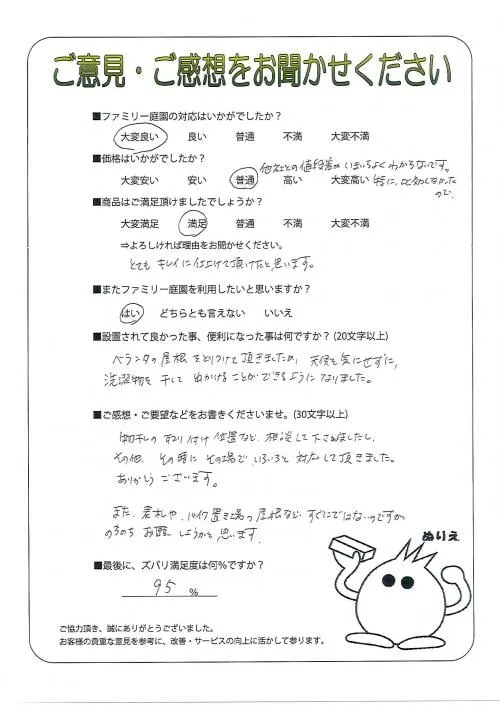 ご意見・ご感想をお聞かせください
■ファミリー庭園の対応はいかがでしたか？
大変良い 良い 普通 不満 大変不満
■価格はいかがでしたか？
他社との値段差がいまいちよくわからないです。
大変安い 安い 普通 高い 大変高い 特に、比較しなかった
ので
■商品はご満足頂けましたでしょうか？
大変満足 満足 普通 不満 大変不満
⇒よろしければ理由をお聞かせください。
とても キレイに仕上げて頂けたと思います。
■またファミリー庭園を利用したいと思いますか？
はい どちらとも言えない いいえ
■設置されて良かった事、便利になった事は何ですか？(20文字以上)
ベランダの屋根をとりつけて頂きましたが、天候を気にせずに、
洗濯物を干して出かけることができるようになりました。
■ご感想・ご要望などをお書きくださいませ。(30文字以上)
物干しの取り付け位置など、相談して下さいましたし、
その他、その時にその場で、いろいろと対応して頂きました。
ありがとうございます。
また、表札や、バイク置き場の屋根など、すぐにではないのですが
のちのちお願いしようかと思います。
ぬりえ
■最後に、ズバリ満足度は何％ですか？
95 %
ご協力頂き、誠にありがとうございました。
お客様の貴重な意見を参考に、改善・サービスの向上に活かして参ります。